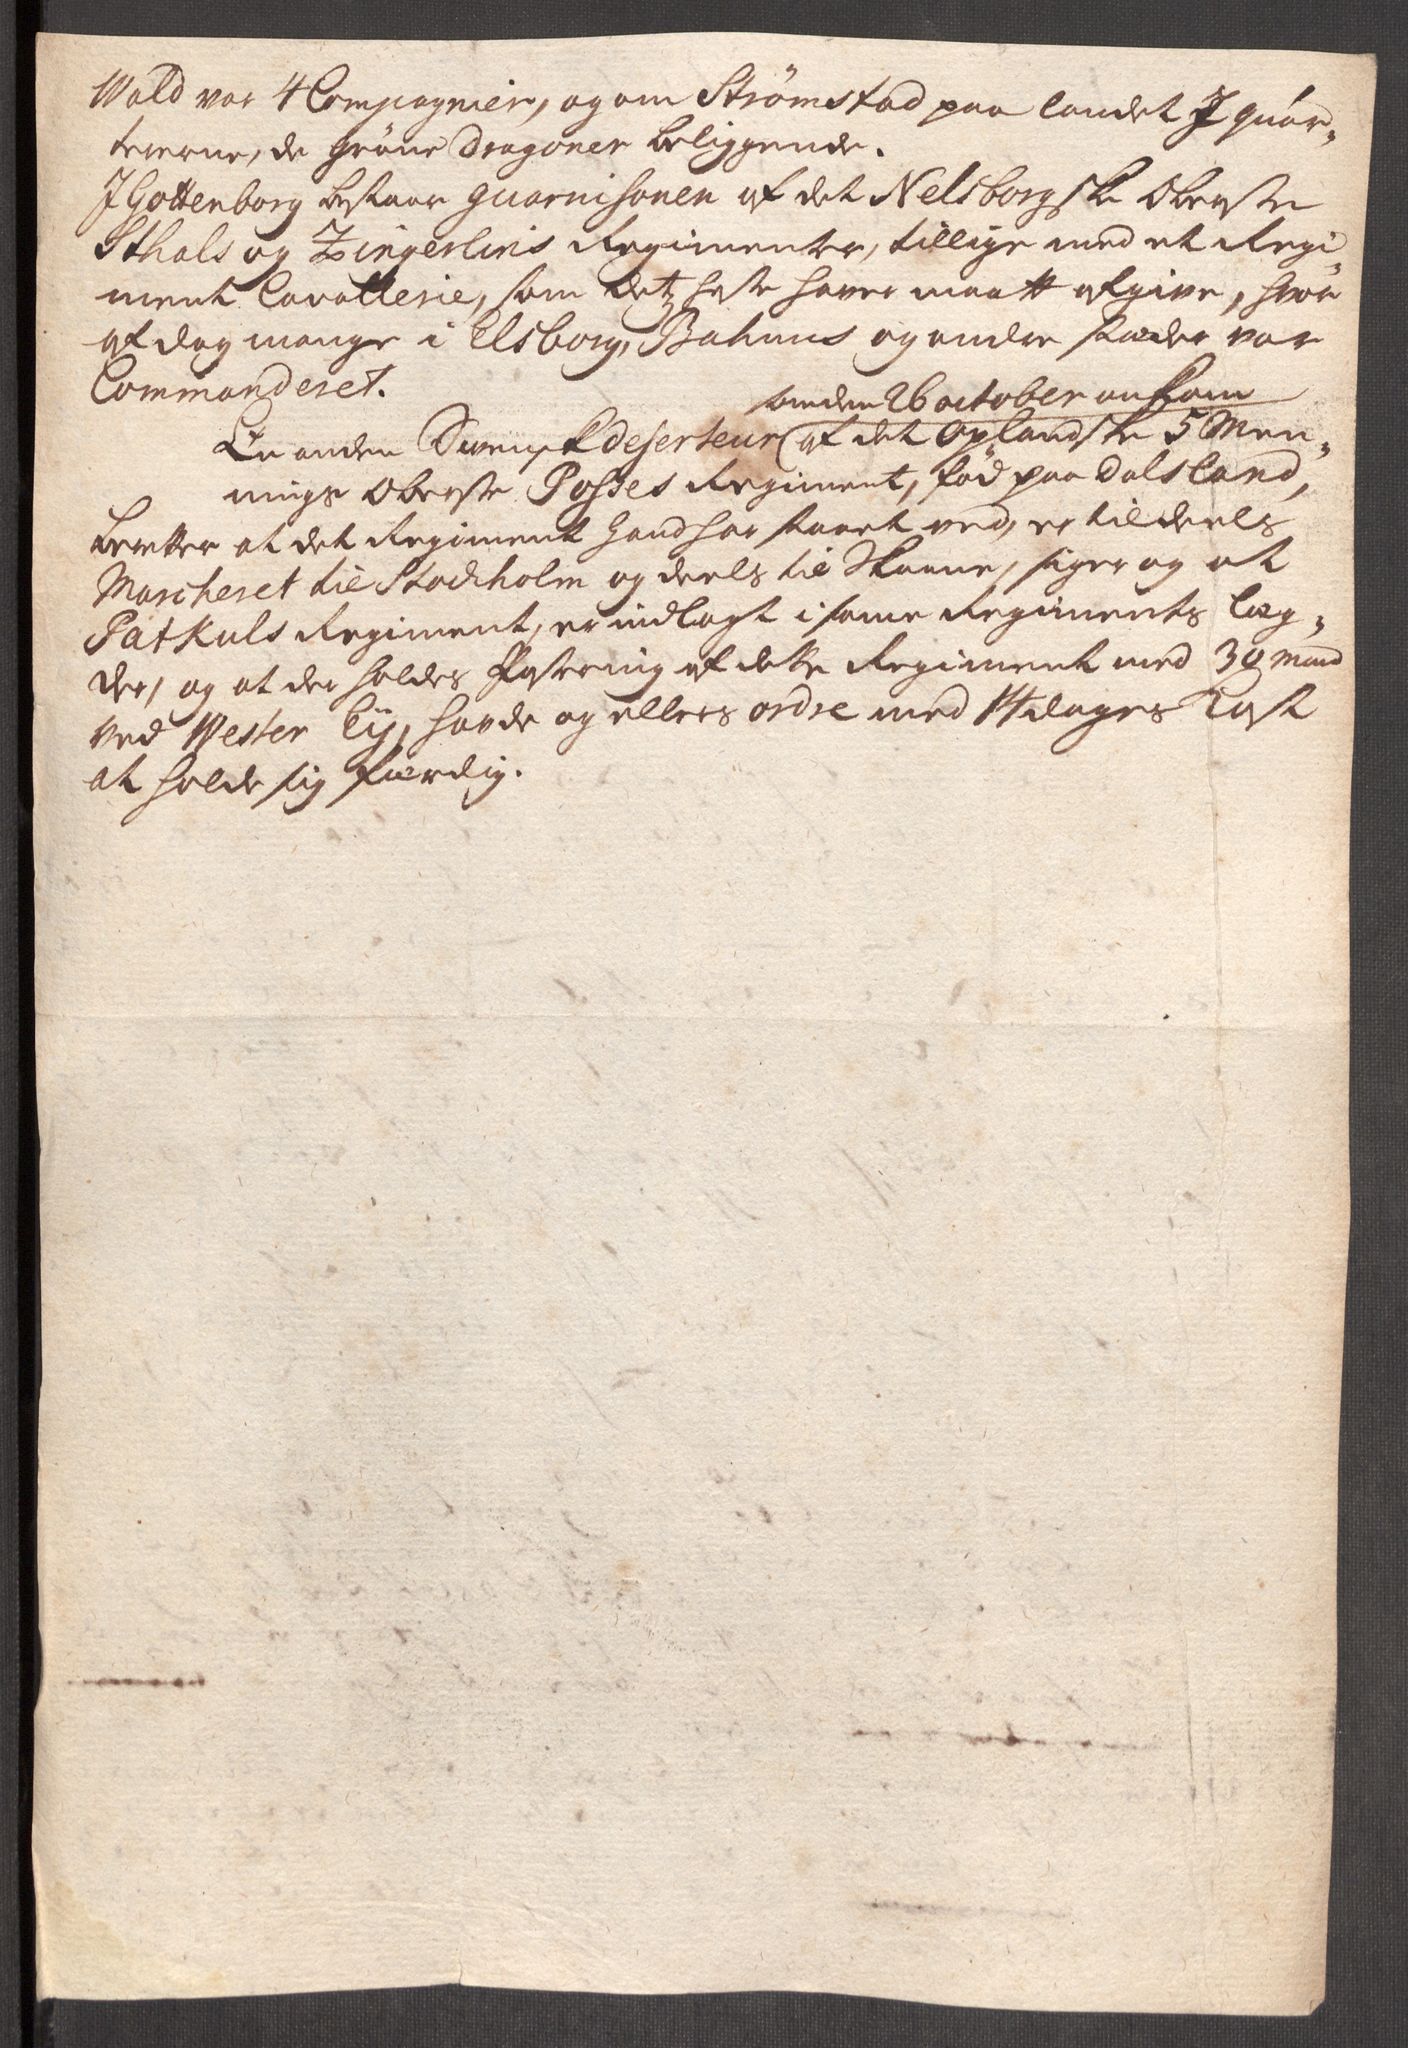 Wald var 4 Compagnier, og om Strømstad paa landet J quar-
tererne, de Grøne Dragoner beliggende.
J Gottenborg bestaar guarnisonen af det Nelsborgske Oberste
Sthals og Zingerlins Regimenter, tillige med et Regi-
ment Cavallerie, som detz heste haver maatt afgive, hvor
af dog mange i Elsborg, Bahuus og andre stæder var
Commanderet.
som den 26 october ankom
En anden Svensk deserteur af det Oplandske 5 Men-
nings Oberste Posses Regiment, fød paa Dalsland,
beretter at det Regiment hand har staaet ved, er til deels
Marcheret til Stockholm og deels til Skaane, siger og at
Patkuls Regiment, er indlagt i same Regiments læg-
der, og at der holdes Postering af dette Regiment med 30 Mand
ved Wester Eij, havde og ellers ordre med 14 dages Kost
at holde sig færdig.